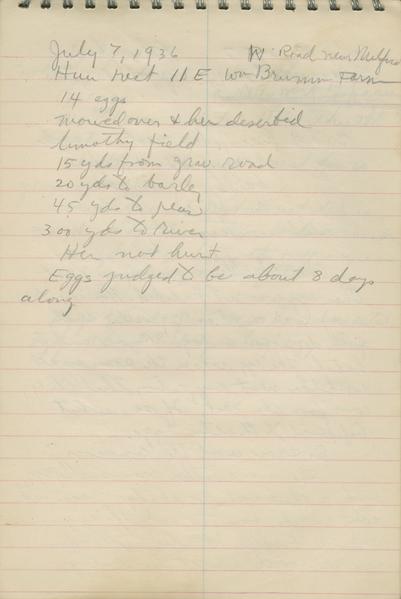 July 7, 1936 Road near
Hun nest 11 E Wm Farm
14 eggs
mowed over & hen deserted
timothy field
15 yds from grav road
20 yds to barley
45 yds to peas
300 yds to river
Hen not hurt
Eggs judged to be about 8 days
along